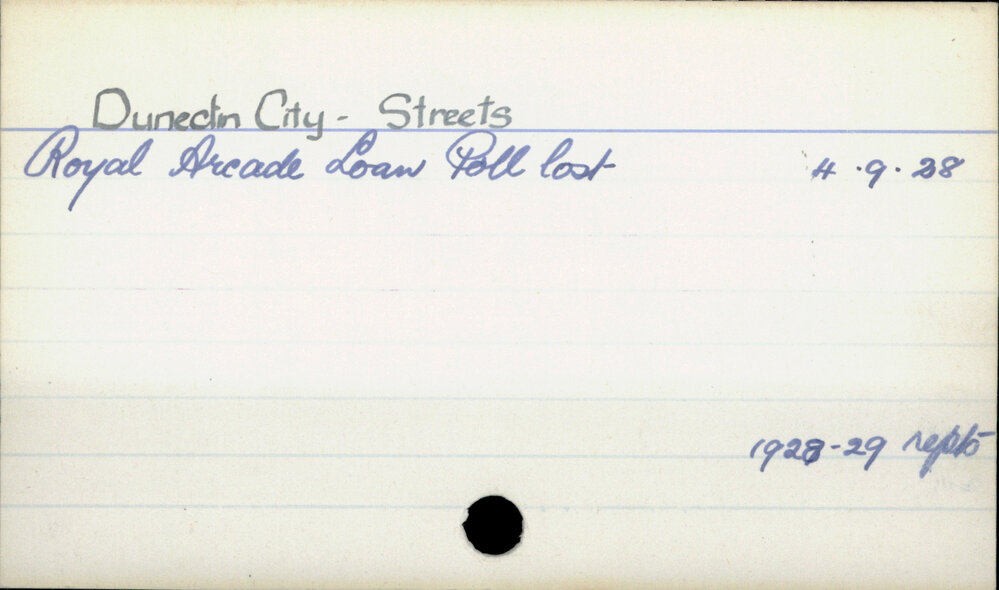 Dunedin City - Streets
Royal Arcade Loan Poll lost 4.9.28
1928-29 repts